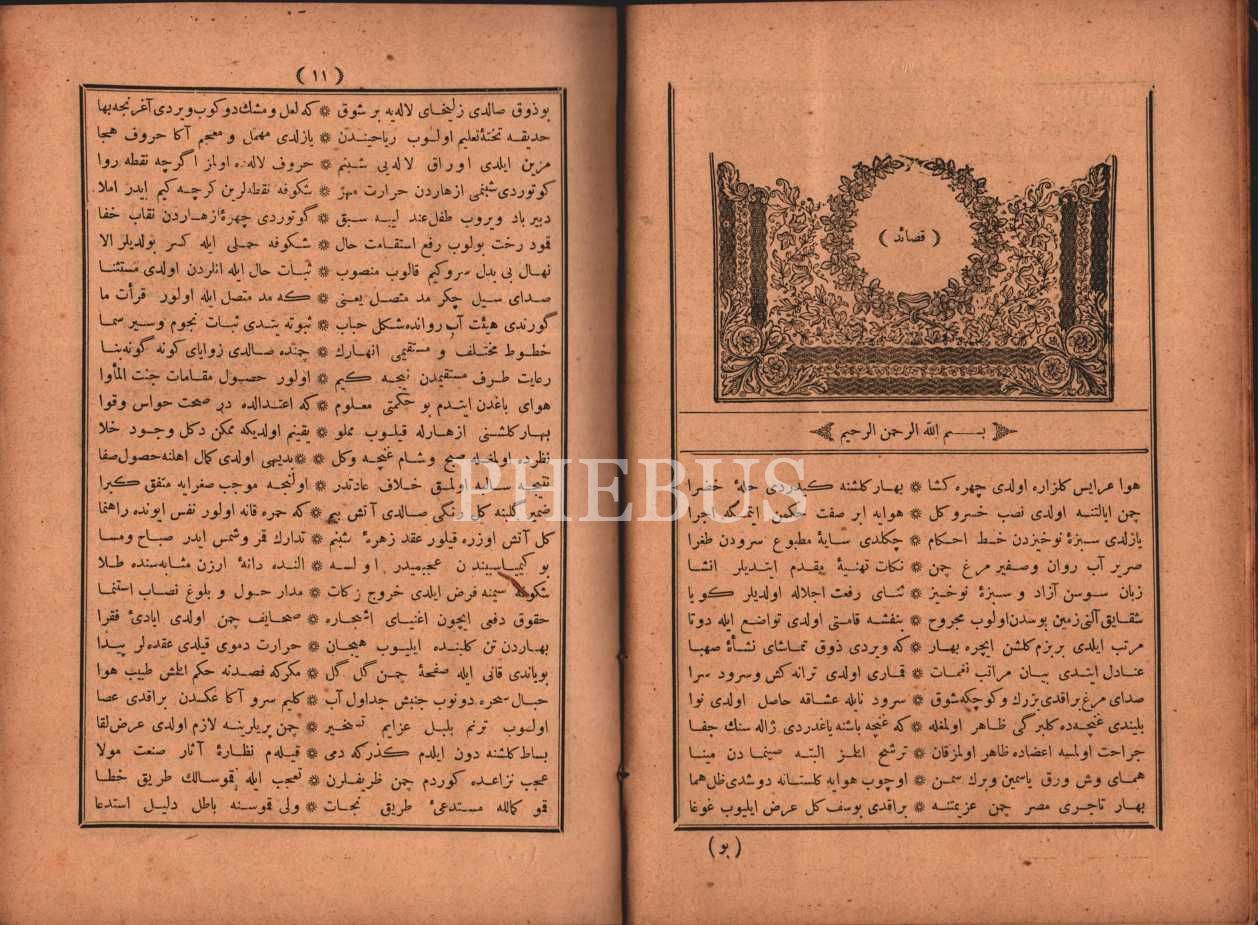 ( قصائد )
بسم الله الرحمن الرحيم
هوا عرایس کلزاره اولدی چهره کشا ❊ بهار کلشنه کیدردی حلهٔ خضرا
چمن ایالتنه اولدی نصب خسرو کل ❊ هوایه ابر صفت حکمن ایتمکه اجرا
یازلدی سبزهٔ نوخیزدن خط احکام ❊ چکلدی سایهٔ مطبوع سرودن طغرا
صریر آب روان وصفیر مرغ چمن ❊ نکات تهنیهٔ مقدم ایتدیلر انشا
زبان سوسن آزاد و سبزهٔ نوخیز ❊ ثنای رفعت اجلاله اولدیلر کویا
شقایق آلنی زمین بوسدن اولوب مجروح ❊ بنفشه قامتی اولدی تواضع ایله دوتا
مرتب ایلدی بر بزم کلشن ایچره بهار ❊ که ویردی ذوق تماشای نشأهٔ صهبا
عنادل ایتدی بیان مراتب نغمات ❊ قماری اولدی ترانه کش وسرود سرا
صدای مرغ براقدی بزرك وکوچکه شوق ❊ سرود نایله عشاقه حاصل اولدی نوا
بلیندی غنچه ده کلبرك کی ظاهر اولمغله ❊ که غنچه باشنه یاغدردی ژاله سنك جفا
جراحت اولمسه اعضاده ظاهر اولمز قان ❊ ترشح ایلمز البته صینمادن مینا
همای وش ورق یاسمین وبرك سمن ❊ اوچوب هوایه کلستانه دوشدی ظل هما
بهار تاجری مصر چمن عزیمتنه ❊ براقدی یوسف کل عرض ایلیوب غوغا
( بو )
( ١١ )
بو ذوق صالدی زلیخای لاله یه بر شوق ❊ که لعل و مشك دوکوب ویردی آغر نجه بها
حدیقه تختهٔ تعلیم اولوب ریاحیندن ❊ یازلدی مهمل و معجم آکا حروف هجا
مزین ایلدی اوراق لاله یی شبنم ❊ حروف لاله ده اولمز اگرچه نقطه روا
کوتوردی شبنمی ازهاردن حرارت مهر ❊ شکوفه نقطه لرین کرچه کیم ایدر املا
دبیر باد ویروب طفل عندلیبه سبق ❊ گوتوردی چهرهٔ ازهاردن نقاب خفا
قمود رخت بولوب رفع استقامت حال ❊ شکوفه حملی ایله کسر بولدیلر الا
نهال بی بدل سرو کیم قالوب منصوب ❊ ثبات حال ایله انلردن اولدی مستثنا
صدای سیل چکر مد متصل یعنی ❊ که مد متصل ایله اولور قرأت ما
گورندی هیئت آب روانده شکل حباب ❊ ثبوته یتدی ثبات نجوم وسیر سما
خطوط مختلف و مستقیمی انهارك ❊ چمنده صالدی زوایای کونه گونه بنا
رعایت طرف مستقیمدن نیجه کیم ❊ اولور حصول مقامات جنت المأوا
هوای باغدن ایتدم بو حکمتی معلوم ❊ که اعتدالده در صحت حواس وقوا
بهار کلشنی ازهارله قیلوب مملو ❊ یقینم اولدیکه ممکن دکل وجود خلا
نظرده اولمغله صبح وشام غنچه وکل ❊ بدیهی اولدی کمال اهلنه حصول صفا
نتیجه سالبه اولمق خلاف عادتدر ❊ اولنجه موجب صغرایه متفق کبرا
ضمیر گلبنه کل رنکی صالدی آتش بیم ❊ که حمره قانه اولور نفس ایونده راهنما
کل آتش اوزره قیلور عقد زهرهٔ شبنم ❊ تدارك قمر وشمس ایدر صباح ومسا
بو کیمیاسیندن عجبمیدر اولسه ❊ النده دانهٔ ارزن مشابه سنده طلا
شکوفه سیمنه فرض ایلدی خروج زکات ❊ مدار حول و بلوغ نصاب استنما
حقوق دفعی ایچون اغنیای اشجاره ❊ صحایف چمن اولدی ایادیٔ فقرا
بهاردن تن کلبنده ایلیوب هیجان ❊ حرارت دموی قیلدی عقده لر پیدا
بویاندی قانی ایله صفحهٔ چمن گل گل ❊ مکرکه فصدنه حکم ایلمش طبیب هوا
حبال سحره دونوب جنبش جداول آب ❊ کلیم سرو آکا عکسدن براقدی عصا
اولوب ترنم بلبل عزایم تسخیر ❊ چمن پریلرینه لازم اولدی عرض لقا
بساط کلشنه دون ایلدم کذر که دمی ❊ قیله م نظارهٔ آثار صنعت مولا
عجب نزاعده کوردم چمن ظریفلرن ❊ تعجب ایله قموسالك طریق خطا
قمو کمالله مستدعیٔ طریق نجات ❊ ولی قموسنه باطل دلیل استدعا
PHEBUS